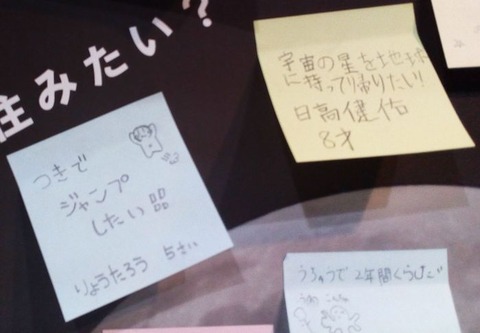 住みたい?
宇宙の星を地球
に持って帰りたい!
日高健佑
8才
つきで
ジャンプ
したい!!
りょうたろう 5さい
うちゅうで2年間くらす